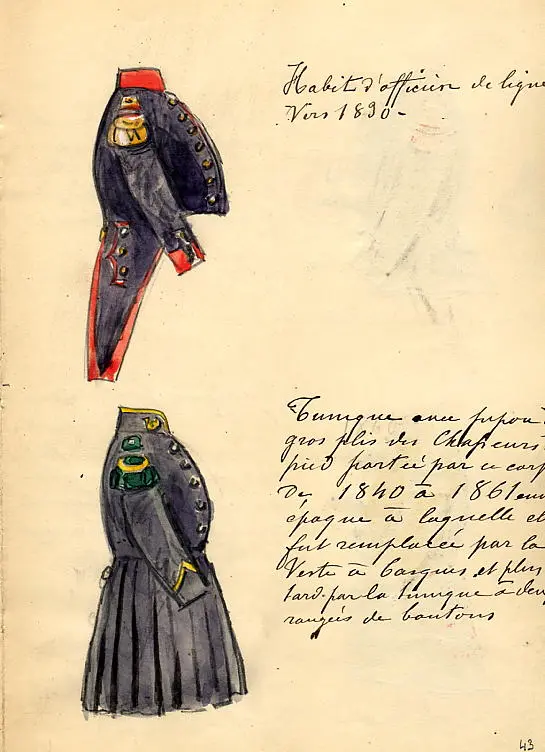 Habit d'officier de ligne
Vers 1830-
Tunique avec jupon à
gros plis des Chasseurs
pied portée par ce corp
De 1840 à 1861 env
époque à laquelle el
fut remplacée par la
Veste à basques et plus
tard par la tunique à deux
rangées de boutons
43